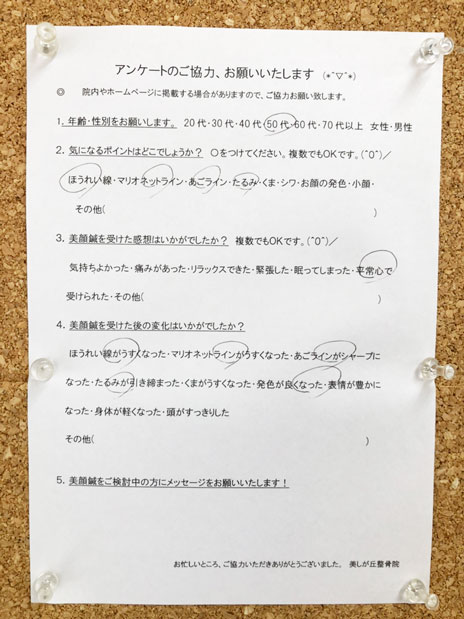 アンケートのご協力、お願いいたします (*^▽^*)
◎ 院内やホームページに掲載する場合がありますので、ご協力お願い致します。
1. 年齢・性別をお願いします。 20代・30代・40代・50代・60代・70代以上 女性・男性
2. 気になるポイントはどこでしょうか? ○をつけてください。複数でもOKです。(^0^)/
ほうれい線・マリオネットライン・あごライン・たるみ・くま・シワ・お顔の発色・小顔・
その他( )
3. 美顔鍼を受けた感想はいかがでしたか? 複数でもOKです。(^0^)/
気持ちよかった・痛みがあった・リラックスできた・緊張した・眠ってしまった・平常心で
受けられた・その他( )
4. 美顔鍼を受けた後の変化はいかがでしたか?
ほうれい線がうすくなった・マリオネットラインがうすくなった・あごラインがシャープに
なった・たるみが引き締まった・くまがうすくなった・発色が良くなった・表情が豊かに
なった・身体が軽くなった・頭がすっきりした
その他( )
5. 美顔鍼をご検討中の方にメッセージをお願いいたします!
お忙しいところ、ご協力いただきありがとうございました。 美しが丘整骨院